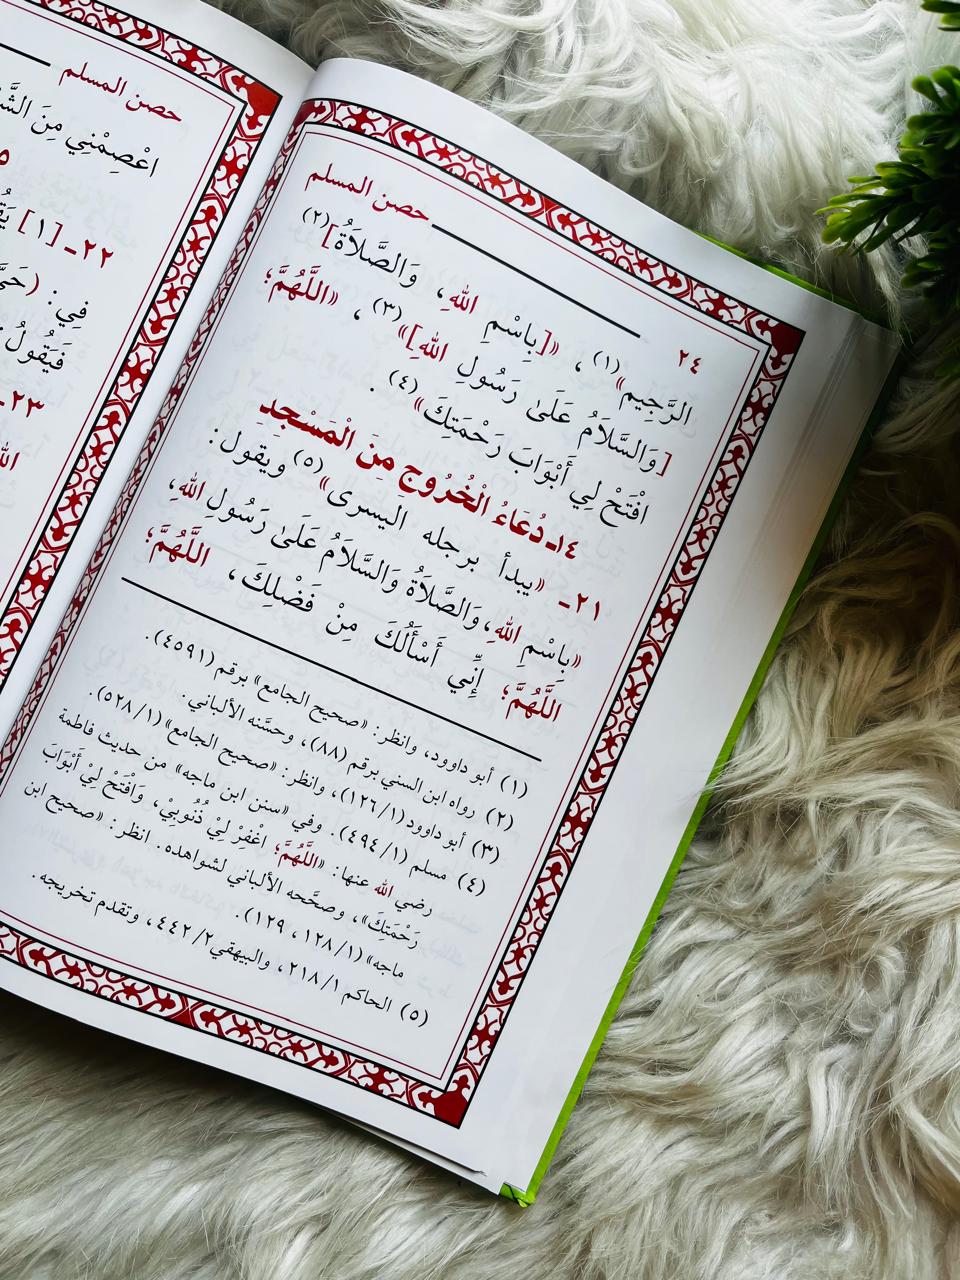 ٢٤
حصن المسلم
الرَّجِيمِ»(١)، «[بِاسْمِ اللهِ، وَالصَّلَاةُ](٢)
[وَالسَّلَامُ عَلَىٰ رَسُولِ اللهِ]»(٣)، «اللَّهُمَّ؛
افْتَحْ لِي أَبْوَابَ رَحْمَتِكَ»(٤).
١٤ـ دُعَاءُ الْخُرُوجِ مِنَ الْمَسْجِدِ
٢١ـ «يبدأ برجله اليسرى»(٥) ويقول:
«بِاسْمِ اللهِ، وَالصَّلَاةُ وَالسَّلَامُ عَلَىٰ رَسُولِ اللهِ،
اللَّهُمَّ؛ إِنِّي أَسْأَلُكَ مِنْ فَضْلِكَ، اللَّهُمَّ؛
(١) أبو داوود، وانظر: «صحيح الجامع» برقم (٤٥٩١).
(٢) رواه ابن السني برقم (٨٨)، وحسَّنه الألباني.
(٣) أبو داوود (١/ ١٢٦)، وانظر: «صحيح الجامع» (١/ ٥٢٨).
(٤) مسلم (١/ ٤٩٤). وفي «سنن ابن ماجه» من حديث فاطمة
رضي الله عنها: «اللَّهُمَّ؛ اغْفِرْ لِيْ ذُنُوبِيْ، وَافْتَحْ لِيْ أَبْوَابَ
رَحْمَتِكَ»، وصحَّحه الألباني لشواهده. انظر: «صحيح ابن
ماجه» (١/ ١٢٨، ١٢٩).
(٥) الحاكم ١/ ٢١٨، والبيهقي ٢/ ٤٤٢، وتقدم تخريجه.
حصن المسلم
اعْصِمْنِي مِنَ
٢٢ـ [١]
فِي: (
فَيَقُولُ:
٢٣ـ
الله